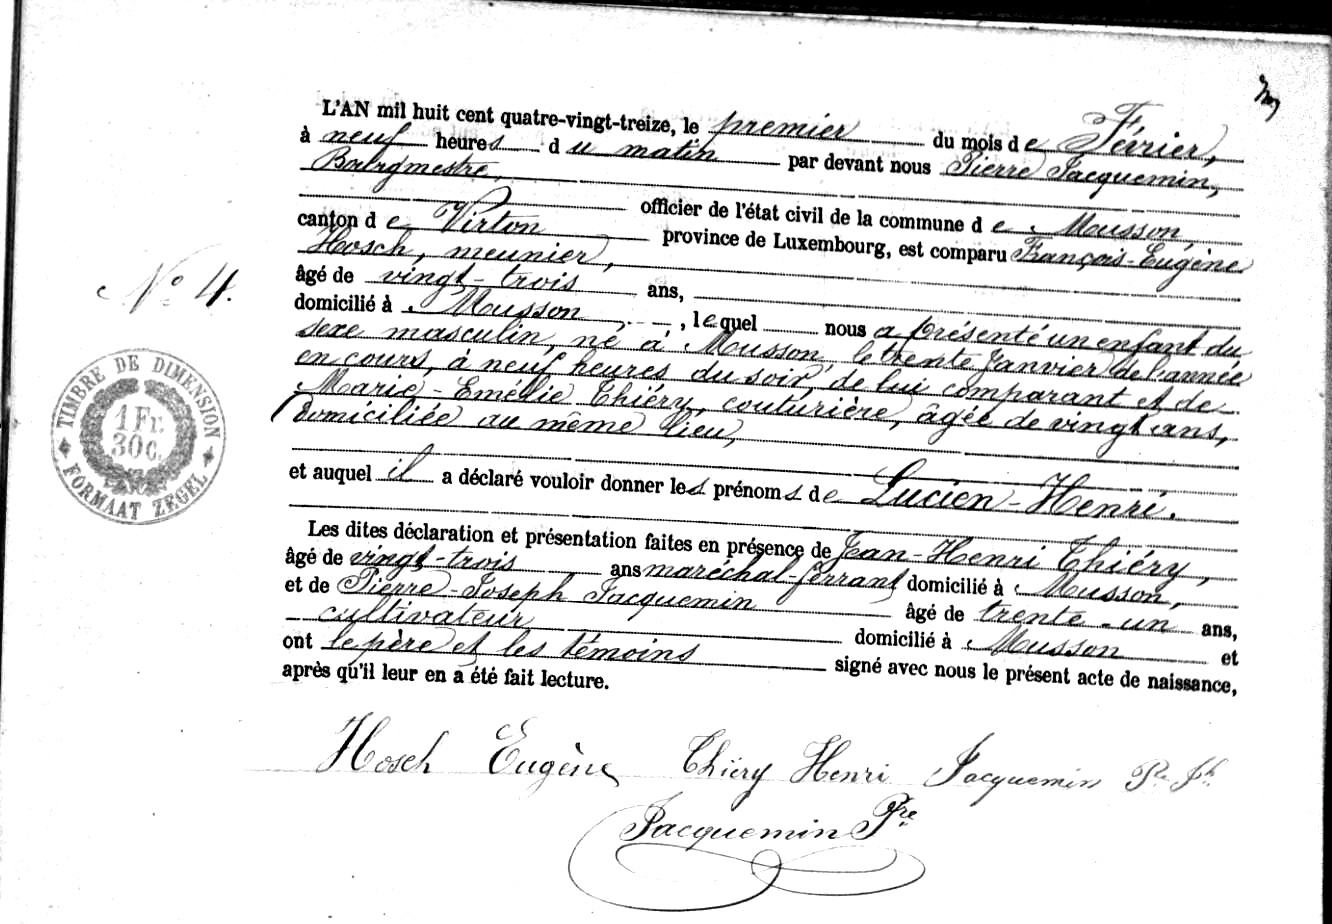 L'AN mil huit cent quatre-vingt-treize, le premier du mois de Février,
à neuf heures du matin par devant nous Pierre Jacquemin,
Bourgmestre,
officier de l'état civil de la commune de Musson,
canton de Virton province de Luxembourg, est comparu François-Eugène
Hosch, meunier,
âgé de vingt-trois ans,
domicilié à Musson, lequel nous a présenté un enfant du
sexe masculin, né à Musson, le trente Janvier de l'année
en cours, à neuf heures du soir, de lui comparant et de
Marie-Emélie Thiéry, couturière, âgée de vingt ans,
domiciliée au même lieu,
et auquel il a déclaré vouloir donner les prénoms de Lucien-Henri.
Les dites déclaration et présentation faites en présence de Jean-Henri Thiéry,
âgé de vingt-trois ans maréchal-ferrant domicilié à Musson,
et de Pierre-Joseph Jacquemin âgé de trente-un ans,
cultivateur domicilié à Musson et
ont le père et les témoins signé avec nous le présent acte de naissance,
après qu'il leur en a été fait lecture.
Hosch Eugène Thiéry Henri Jacquemin Pre Jh
Jacquemin Pre
No 4.
TIMBRE DE DIMENSION
1 Fr.
30 c.
FORMAAT ZEGEL